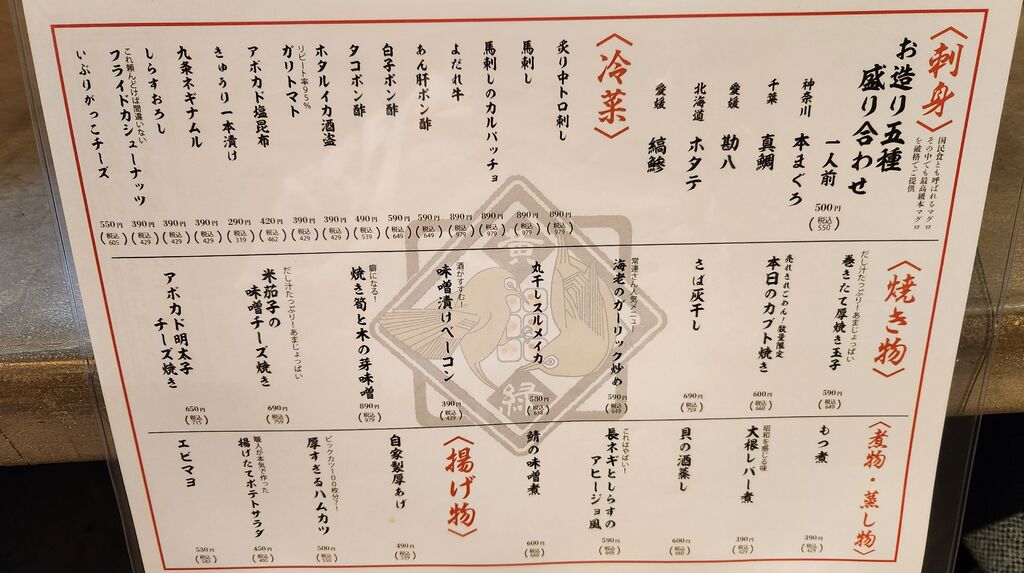 〈刺身〉
国民食とも呼ばれるマグロ
その中でも最高級本マグロ
を破格でご提供
お造り五種
盛り合わせ
一人前
500円
(税込550)
神奈川 本まぐろ
千葉 真鯛
愛媛 勘八
北海道 ホタテ
愛媛 縞鯵
〈冷菜〉
炙り中トロ刺し
890円
(税込979)
馬刺し
890円
(税込979)
馬刺しのカルパッチョ
890円
(税込979)
よだれ牛
890円
(税込979)
あん肝ポン酢
590円
(税込649)
白子ポン酢
590円
(税込649)
タコポン酢
490円
(税込539)
ホタルイカ酒盗
390円
(税込429)
リピート率95%
ガリトマト
390円
(税込429)
アボカド塩昆布
420円
(税込462)
きゅうり一本漬け
290円
(税込319)
九条ネギナムル
390円
(税込429)
しらすおろし
390円
(税込429)
これ頼んどけば間違いない
フライドカシューナッツ
390円
(税込429)
いぶりがっこチーズ
550円
(税込605)
〈焼き物〉
だし汁たっぷり!あまじょっぱい
巻きたて厚焼き玉子
590円
(税込649)
売れきれごめん!数量限定
本日のカブト焼き
600円
(税込660)
さば灰干し
690円
(税込759)
常連さん人気メニュー
海老のガーリック炒め
590円
(税込649)
丸干しスルメイカ
580円
(税込638)
酒がすすむー
味噌漬けベーコン
390円
(税込429)
癖になる!
焼き筍と木の芽味噌
890円
(税込979)
だし汁たっぷり!あまじょっぱい
米茄子の
味噌チーズ焼き
690円
(税込759)
アボカド明太子
チーズ焼き
650円
(税込715)
〈煮物・蒸し物〉
もつ煮
390円
(税込429)
昭和を感じる味
大根レバー煮
390円
(税込429)
貝の酒蒸し
600円
(税込660)
これはやばい!
長ネギとしらすの
アヒージョ風
590円
(税込649)
鯖の味噌煮
600円
(税込660)
〈揚げ物〉
自家製厚あげ
490円
(税込539)
ビックカツ100枚分?!
厚すぎるハムカツ
500円
(税込550)
職人が本気で作った
揚げたてポテトサラダ
450円
(税込495)
エビマヨ
530円
(税込583)